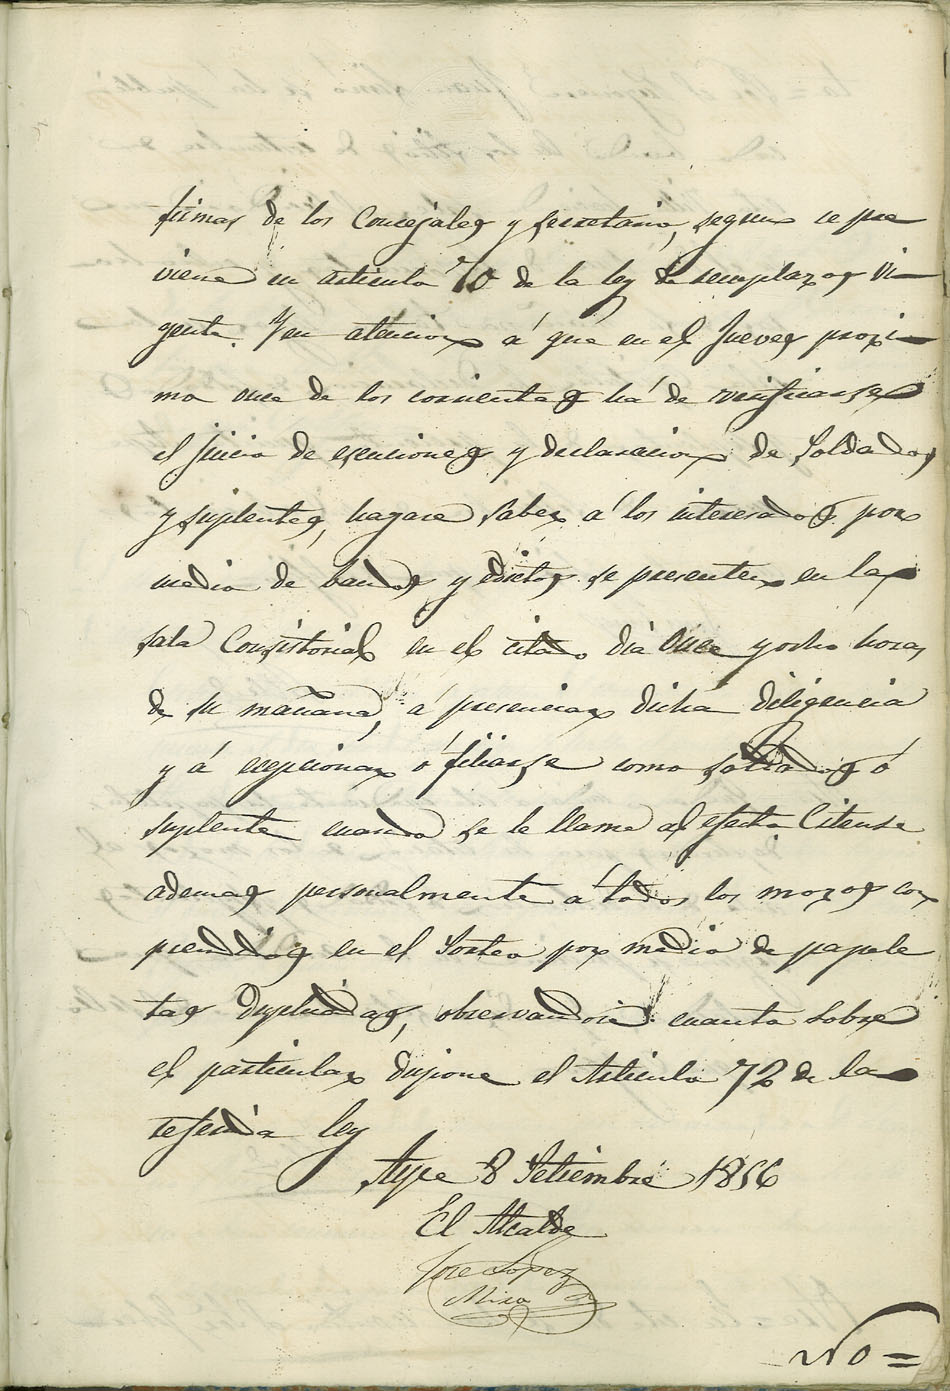 firmas de los Concejales y secretario, segun se pre
viene en articulo 70 de la ley de remplazos vi
gente. Y en atencion á que en el Jueves proxi
mo once de los corrientes há de verificarse
el juicio de esenciones y declaracion de Soldados
y suplentes, hagase saber á los interesados por
medio de bandos y edictos se presenten en la
sala Consistorial en el citado dia Once y ocho horas
de su mañana, á presenciar dicha diligencia
y á escepcionar ó filiarse como soldados ó
suplente cuando se le llame al efecto Citense
ademas personalmente á todos los mozos con
prendidos en el Sorteo por medio de papele
tas duplicadas, observandose cuanto sobre
el particular dispone el Articulo 72 de la
referida ley
Aspe 8 Setiembre 1856
El Alcalde
Jose Lopez
Mira
No=